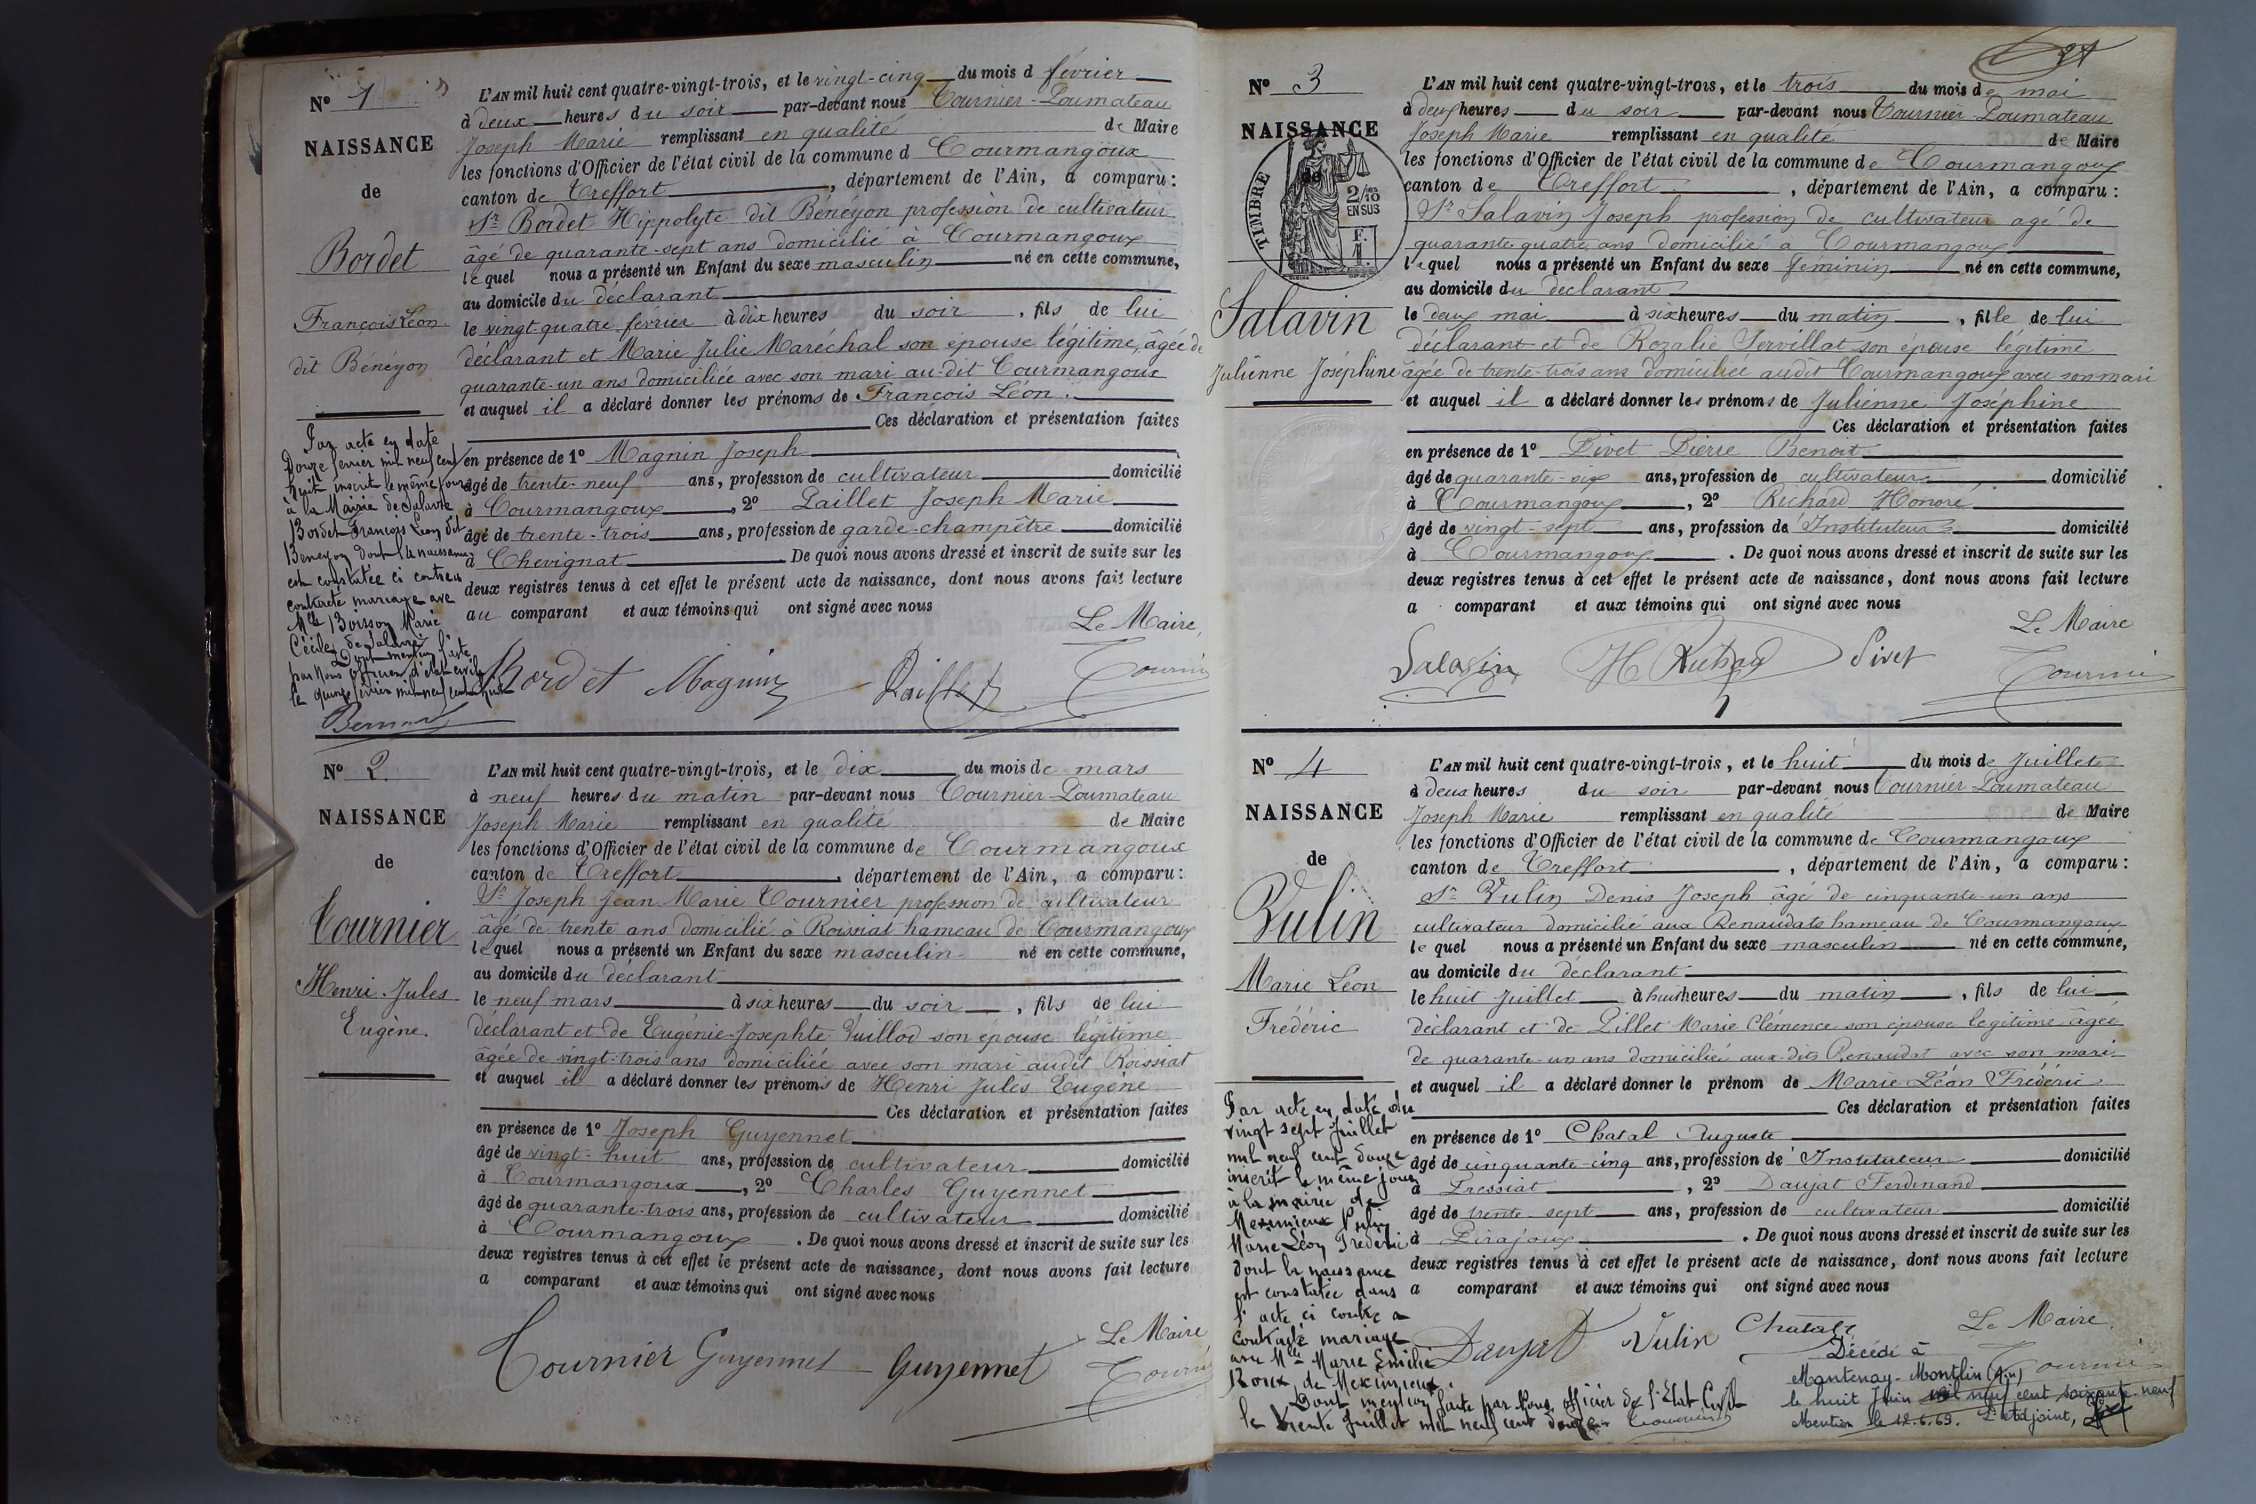 N° 1
NAISSANCE
de
Bordet
François Léon
dit Bénéyon
L'AN mil huit cent quatre-vingt-trois, et le vingt-cinq du mois d février
à deux heures du soir par-devant nous Tournier-Poumateau
Joseph Marie remplissant en qualité de Maire
les fonctions d'Officier de l'état civil de la commune d Courmangoux
canton de Treffort, département de l'Ain, a comparu:
Sr Bordet Hippolyte dit Bénéyon profession de cultivateur
âgé de quarante-sept ans domicilié à Courmangoux
lequel nous a présenté un Enfant du sexe masculin né en cette commune,
au domicile du déclarant
le vingt-quatre février à dix heures du soir, fils de lui
déclarant et Marie Julie Maréchal son épouse légitime, âgée de
quarante-un ans domiciliée avec son mari au-dit Courmangoux
et auquel il a déclaré donner les prénoms de François Léon.
Ces déclaration et présentation faites
en présence de 1° Magnin Joseph
âgé de trente-neuf ans, profession de cultivateur domicilié
à Courmangoux, 2° Paillet Joseph Marie
âgé de trente-trois ans, profession de garde-champêtre domicilié
à Chevignat De quoi nous avons dressé et inscrit de suite sur les
deux registres tenus à cet effet le présent acte de naissance, dont nous avons fait lecture
au comparant et aux témoins qui ont signé avec nous
Le Maire,
Bordet Magnin Paillet Tournier
Par acte en date
Douze février mil neuf cent
huit inscrit le même jour
à la Mairie de Salavre
Bordet François Léon dit
Beneyon dont la naissance
est constatée ci contre a
contracté mariage avec
Mlle Boisson Marie
Cécile, de Salavre
Dont mention faite
par Nous officier d'état civil
le quinze février mil neuf cent huit
N° 2
NAISSANCE
de
Tournier
Henri Jules
Eugène.
L'AN mil huit cent quatre-vingt-trois, et le dix du mois de mars
à neuf heures du matin par-devant nous Tournier-Poumateau
Joseph Marie remplissant en qualité de Maire
les fonctions d'Officier de l'état civil de la commune de Courmangoux
canton de Treffort, département de l'Ain, a comparu:
Sr Joseph Jean Marie Tournier profession de cultivateur
âgé de trente ans domicilié à Roissiat hameau de Courmangoux
lequel nous a présenté un Enfant du sexe masculin né en cette commune,
au domicile du déclarant
le neuf mars à six heures du soir, fils de lui
déclarant et de Eugénie-Josephte Vuillod son épouse légitime
âgée de vingt-trois ans domiciliée avec son mari audit Roissiat
et auquel il a déclaré donner les prénoms de Henri Jules Eugène
Ces déclaration et présentation faites
en présence de 1° Joseph Guyennet
âgé de vingt-huit ans, profession de cultivateur domicilié
à Courmangoux, 2° Charles Guyennet
âgé de quarante-trois ans, profession de cultivateur domicilié
à Courmangoux. De quoi nous avons dressé et inscrit de suite sur les
deux registres tenus à cet effet le présent acte de naissance, dont nous avons fait lecture
a comparant et aux témoins qui ont signé avec nous
Le Maire
Tournier Guyennet Guyennet Tournier
N° 3
NAISSANCE
de
TIMBRE
2/10 EN SUS
F. 1.
Salavin
Julienne Joséphine
L'AN mil huit cent quatre-vingt-trois, et le trois du mois de mai
à deux heures du soir par-devant nous Tournier Poumateau
Joseph Marie remplissant en qualité de Maire
les fonctions d'Officier de l'état civil de la commune de Courmangoux
canton de Treffort, département de l'Ain, a comparu:
Sr Salavin Joseph profession de cultivateur agé de
quarante quatre ans domicilié à Courmangoux
lequel nous a présenté un Enfant du sexe féminin né en cette commune,
au domicile du déclarant
le deux mai à six heures du matin, fille de lui
déclarant et de Rozalie Servillat son épouse légitime
âgée de trente-trois ans domiciliée audit Courmangoux avec son mari
et auquel il a déclaré donner les prénoms de Julienne Joséphine
Ces déclaration et présentation faites
en présence de 1° Pivet Pierre Benoit
âgé de quarante-six ans, profession de cultivateur domicilié
à Courmangoux, 2° Richard Honoré
âgé de vingt-sept ans, profession de Instituteur domicilié
à Courmangoux. De quoi nous avons dressé et inscrit de suite sur les
deux registres tenus à cet effet le présent acte de naissance, dont nous avons fait lecture
a comparant et aux témoins qui ont signé avec nous
Le Maire
Salavin H Richard Pivet Tournier
N° 4
NAISSANCE
de
Vulin
Marie Léon
Frédéric
L'AN mil huit cent quatre-vingt-trois, et le huit du mois de Juillet
à deux heures du soir par-devant nous Tournier Poumateau
Joseph Marie remplissant en qualité de Maire
les fonctions d'Officier de l'état civil de la commune de Courmangoux
canton de Treffort, département de l'Ain, a comparu:
Sr Vulin Denis Joseph âgé de cinquante-un ans
cultivateur domicilié aux Renaudats hameau de Courmangoux
lequel nous a présenté un Enfant du sexe masculin né en cette commune,
au domicile du déclarant
le huit Juillet à huit heures du matin, fils de lui
déclarant et de Pillet Marie Clémence son épouse légitime âgée
de quarante-un ans domiciliée aux-dits Renaudat avec son mari
et auquel il a déclaré donner le prénom de Marie Léon Frédéric
Ces déclaration et présentation faites
en présence de 1° Chatal Auguste
âgé de cinquante-cinq ans, profession de Instituteur domicilié
à Pressiat, 2° Daujat Ferdinand
âgé de trente-sept ans, profession de cultivateur domicilié
à Pirajoux. De quoi nous avons dressé et inscrit de suite sur les
deux registres tenus à cet effet le présent acte de naissance, dont nous avons fait lecture
a comparant et aux témoins qui ont signé avec nous
Le Maire
Daujat Vulin Chatal Tournier
Par acte en date du
vingt sept Juillet
mil neuf cent douze
inscrit le même jour
à la mairie de
Meximieux Vulin
Marie Léon Frédéric
dont la naissance
est constatée dans
l'acte ci contre a
contracté mariage
avec Mlle Marie Emilie
Roux, de Meximieux.
Dont mention faite par Nous, officier de l'Etat Civil
le trente Juillet mil neuf cent douze.
Décédé à
Mantenay-Montlin (Ain)
le huit Juin mil neuf cent soixante-neuf
Mention le 12.6.69. L'adjoint,